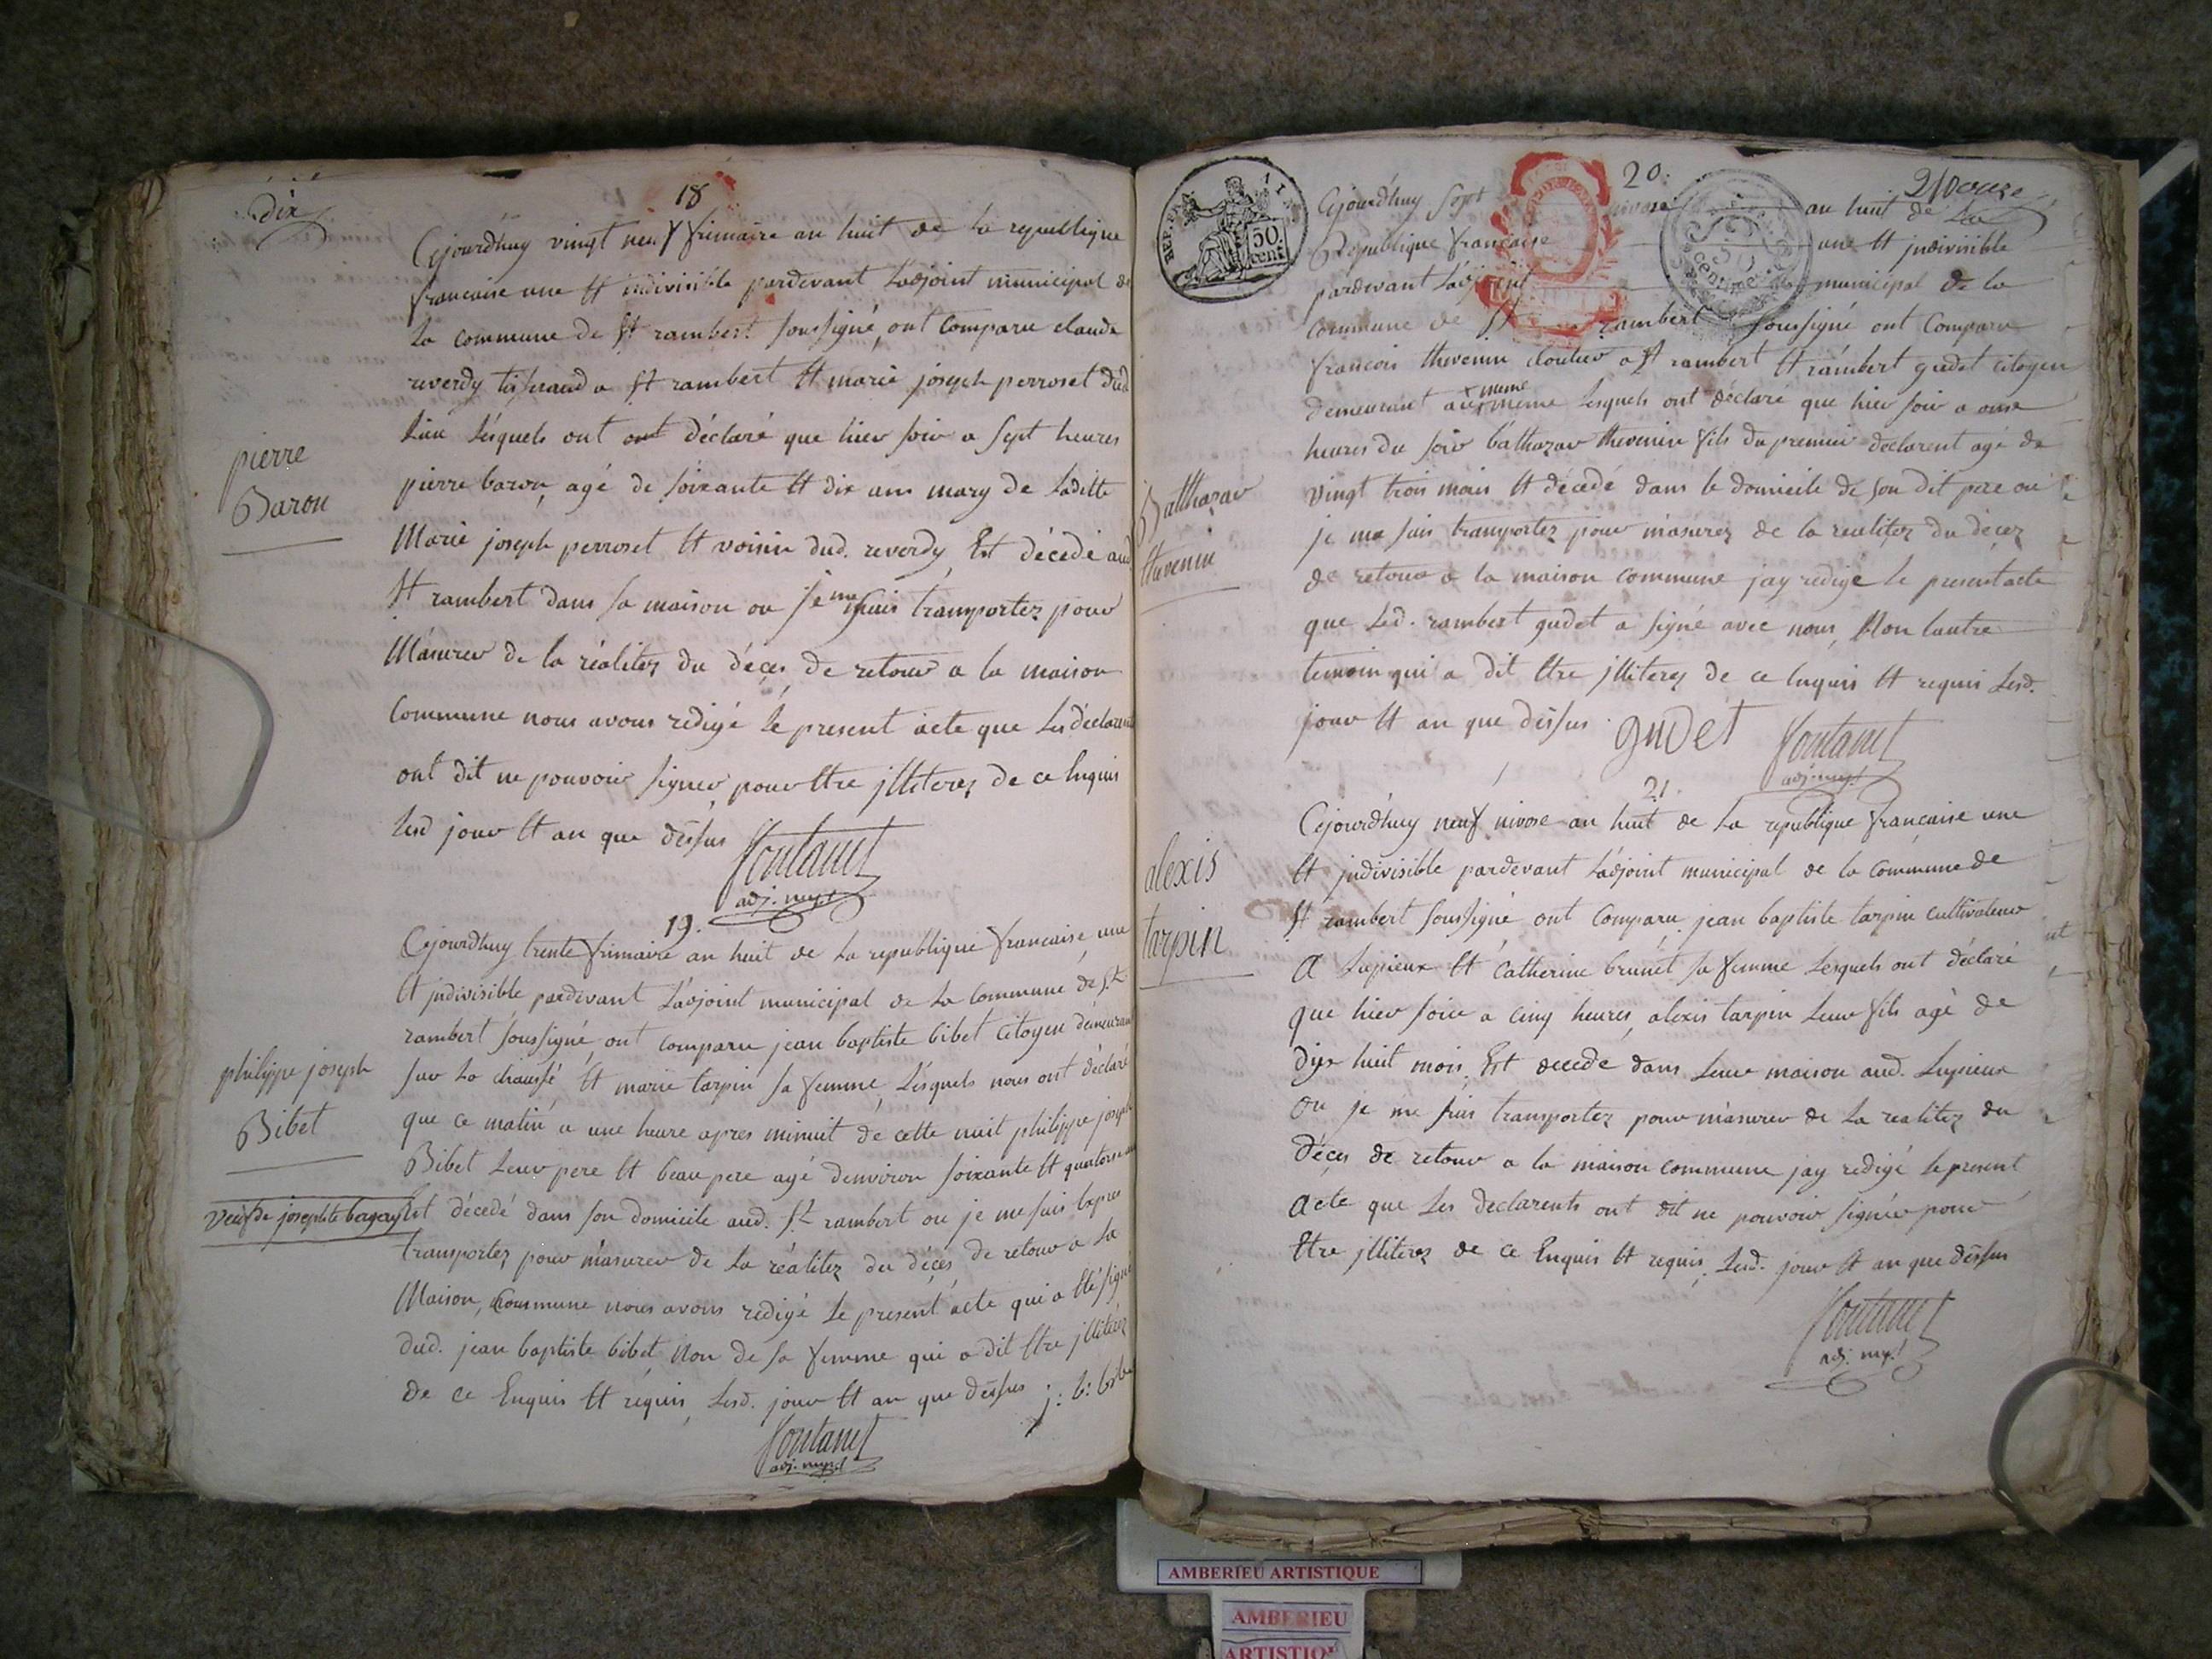 dix
18
Cejourdhuy vingt neuf frimaire an huit de la republique
francaise une et indivisible pardevant Ladjoint municipal de
La commune de St rambert soussigné, ont comparu claude
reverdy tisserand a St rambert et marie joseph perroset dud
Lieu Lésquels ont ont déclaré que hier soir a sept heures
pierre baron, agé de soixante et dix ans mary de Laditte
Marie joseph perroset et voisin dud. reverdy, Est décedé aud
St rambert dans sa maison ou je me suis transportez pour
M'asurer de la réalitez du déces, de retour a la maison
Commune nous avons redigé le present acte que Les déclarents
ont dit ne pouvoir signer pour etre jlliterez de ce Enquis
Lesd jour et an que dessus
fontanet
adj. mup.l
pierre
Baron
19.
Cejourdhuy trente frimaire an huit de La republique francaise, une
et jndivisible pardevant L'adjoint municipal de La Commune de St
rambert soussigné, ont comparu jean baptiste bibet Citoyen demeurant
sur La chaussé, et marie tarpin sa femme, Lesquels nous ont déclaré
que ce matin a une heure apres minuit de cette nuit philippe joseph
Bibet Leur pere et beau pere agé denviron soixante et quatorse ans
Est décedé dans son domicile aud. St rambert ou je me suis
transportez pour m'asurer de La réalitez du déces, de retour a La
Maison, Commune nous avons redigé Le present acte qui a été signé
dud. jean baptiste bibet Non de sa femme qui a dit etre jlliterez
de ce Enquis et réquis, Lesd. jour et an que dessus j: b: bibet
fontanet
adj. mup.l
philippe joseph
Bibet
veuf de josephte
20.
21 onze
REP. FRA
50
cent
Cejourdhuy sept nivose an huit de La
Republique francaise une et jndivisible
pardevant Ladjoint municipal de la
Commune de St rambert soussigné ont Comparu
francois thevenin cloutier a St rambert et rambert gudet citoyen
demeurant au meme Lesquels ont déclaré que hier soir a onse
heures du soir balthazar thevenin fils du premier declarent agé de
vingt trois mois et décédé dans le domicile de son dit pere ou
je me suis transportez pour m'asurez de la realitez du décez
de retour a la maison commune jay redigé le present acte
que Led. rambert gudet a signé avec nous, Non lautre
temoin qui a dit etre jlliterez de ce Enquis et requis Lesd.
jour et an que dessus.
gudet fontanet
adj. mup.l
Balthazar
thevenin
21.
Cejourdhuy neuf nivose an huit de La republique francaise une
et jndivisible pardevant L'adjoint municipal de la Commune de
St rambert soussigné ont Comparu jean baptiste tarpin cultivateur
A Lupieux et Catherine brunet sa femme Lesquels ont déclaré
que hier soir a cinq heures, alexis tarpin Leur fils agé de
dix huit mois, Est decedé dans Leur maison aud. Lupieux
Ou je me suis transportez pour m'asurer de La realitez du
Déces de retour a la maison commune jay redigé le present
Acte que Les declarents ont dit ne pouvoir signér pour
Etre jlliterez de ce Enquis et requis. Lesd. jour et an que dessus
fontanet
adj. mup.l
alexis
tarpin
AMBERIEU ARTISTIQUE
AMBERIEU
ARTISTIQU